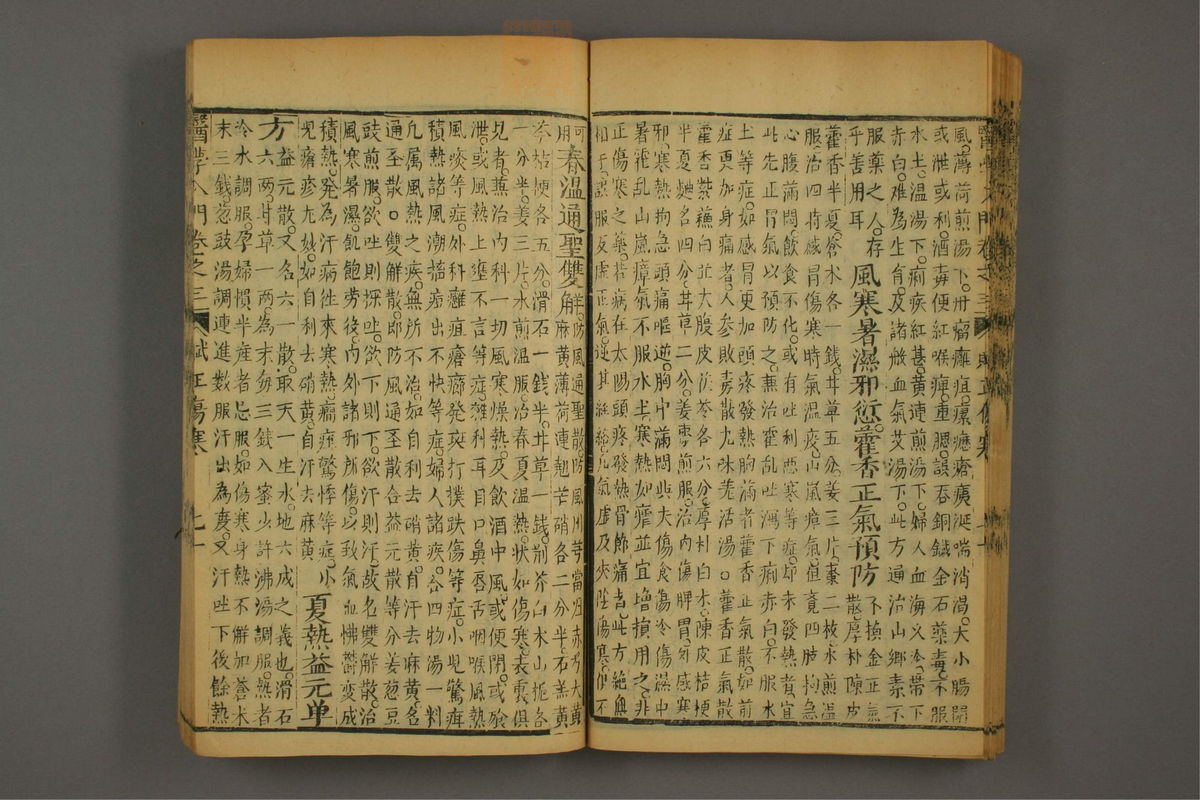 醫學入門卷之三 賦正傷寒
風薄荷煎湯下癰疽瘰癧瘡痍涎喘消渴大小腸閉
或泄或利酒毒便紅喉痺重腮誤吞銅鐵金石藥毒不服
水土溫湯下痢疾紅甚黃連煎湯下婦人血海久冷帶下
赤白難為生育及諸般血氣艾湯下此方通治山鄉素不
服藥之人存
乎善用耳
風寒暑濕邪愆藿香正氣預防
不換金正氣
散厚朴陳皮
藿香半夏蒼木各一錢甘草五分姜三片棗二枚水煎溫
服治四時感冒傷寒時氣溫疫山嵐瘴氣但覺四肢拘急
心腹滿悶飲食不化或有吐利惡寒等症却未發熱者宜
此先正胃氣以預防之兼治霍乱吐瀉下痢赤白不服水
上等症如感冒更加頭疼發熱胸滿者藿香正氣散如前
症更加身痛者人參敗毒散九味羌活湯○藿香正氣散
藿香紫蘓白芷大腹皮茯苓各六分厚朴白木陳皮桔梗
半夏麯各四分甘草二分姜棗煎服治內傷脾胃外感寒
邪寒熱拘急頭痛嘔逆胸中滿悶與大傷食傷冷傷濕中
暑霍乱山嵐瘴氣不服水土寒熱如瘧並宜增損用之非
正傷寒之藥若病在太陽頭疼發熱骨節痛者此方絕無
相干誤服反虛正氣逆其經絡元氣虛及夾陰傷寒但不
可
用
春溫通聖雙解
防風通聖散防風川芎當歸赤芍大黃
麻黃薄荷連翹芒硝各二分半石羔黃
芩桔梗各五分滑石一錢半甘草一錢荊芥白木山梔各
一分半姜三片水煎溫服治春夏溫熱狀如傷寒表裏俱
見者兼治內科一切風寒燥熱及飲酒中風或便閉或飱
泄或風熱上壅不言等症雜科耳目口鼻唇舌咽喉風熱
風痰等症外科癰疽瘡癤發斑打撲跌傷等症小兒驚疳
積熱諸風潮搐痘出不快等症婦人諸疾合四物湯一料
凡属風熱之疾無所不治如自利去硝黃自汗去麻黃名
通圣散○雙解散即防風通圣散合益元散等分姜葱豆
豉煎服欲吐則探吐欲下則下欲汗則汗故名雙解散治
風寒暑濕飢飽勞後內外諸邪所傷以致氣血怫鬱变成
積熱發為汗病徃來寒熱癇痓驚悸等症小
兒瘡疹尤妙如自利去硝黃自汗去麻黃
夏熱益元单
方
益元散又名六一散取天一生水地六成之義也滑石
六兩甘草一兩為末每三錢入蜜少許沸湯調服熱者
冷水調服孕婦慣半產者忌服如傷寒身熱不解加蒼木
末三錢葱豉湯調連進數服汗出為度又汗吐下後餘熱
醫學入門卷之三 賦正傷寒